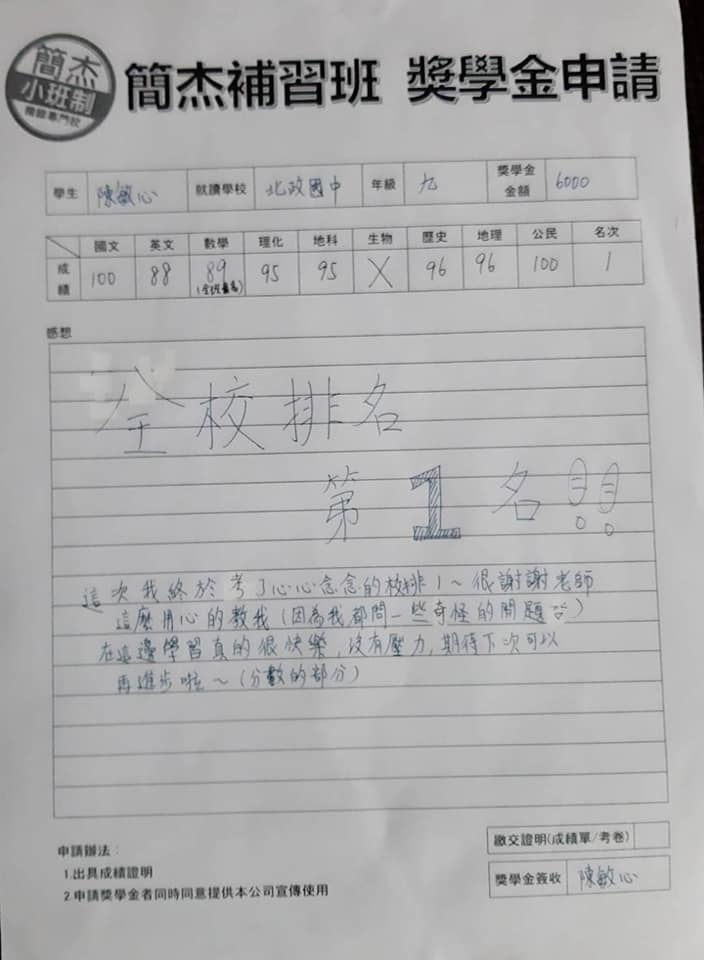 簡杰
小班制
精緻專門校
簡杰補習班 獎學金申請
學生 陳敏心 就讀學校 北政國中 年級 九 獎學金金額 6000
國文 英文 數學 理化 地科 生物 歷史 地理 公民 名次
成績 100 88 89 95 95 X 96 96 100 1
(全班最高)
感想
全校排名
第1名!!
這次我終於考了心心念念的校排1~很謝謝老師
這麼用心的教我(因為我都問一些奇怪的問題)
在這邊學習真的很快樂,沒有壓力,期待下次可以
再進步啦~(分數的部分)
繳交證明(成績單/考卷)
申請辦法:
1.出具成績證明
2.申請獎學金者同時同意提供本公司宣傳使用
獎學金簽收 陳敏心